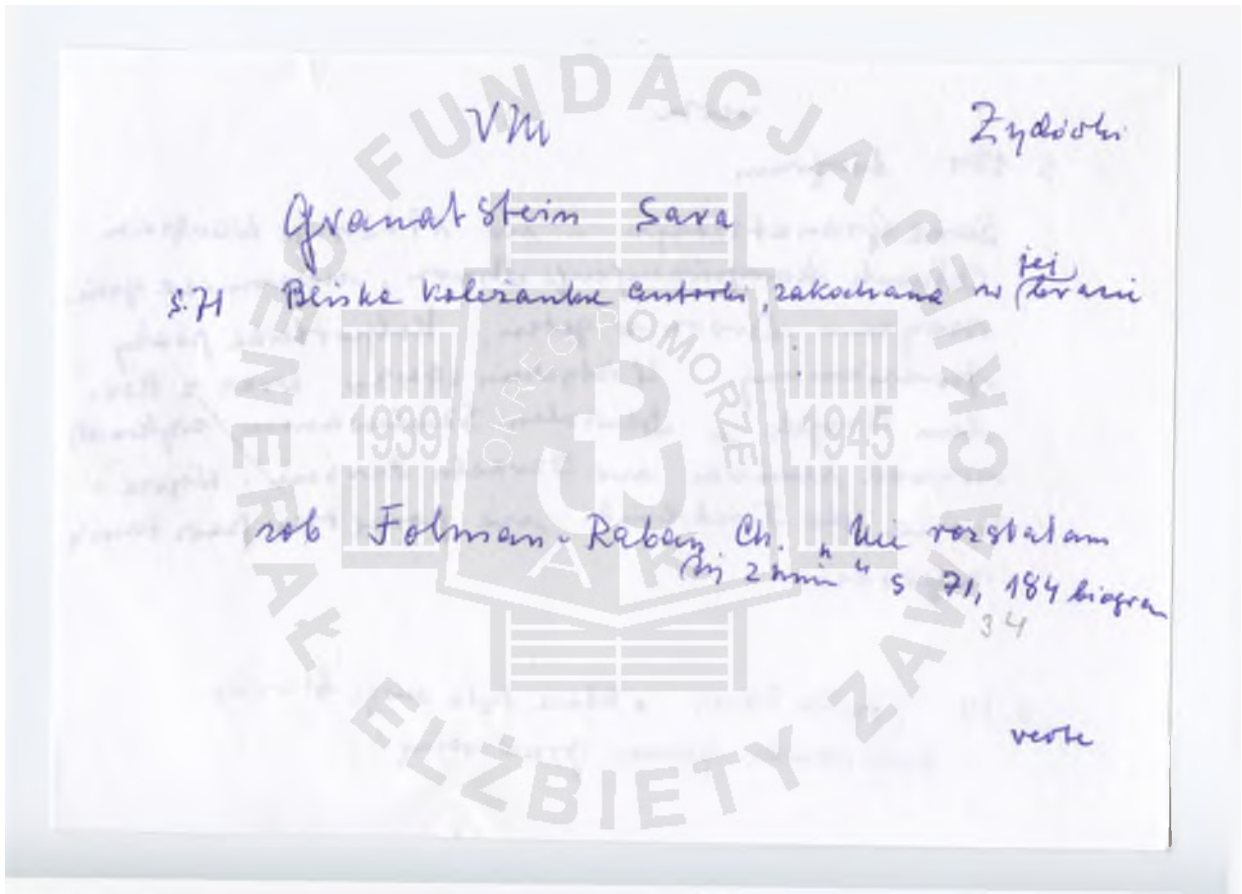 VM Żydówki
Granatstein Sara
s. 71 Bliska koleżanka autorki, zakochana w jej bracie
zob Folman-Raban Ch. „Nie rozstałam
się z nimi" s 71, 184 biogram
34
verte
FUNDACJA GENERAŁ ELŻBIETY ZAWACKIEJ
OKRĘG POMORZE
1939 1945
AK